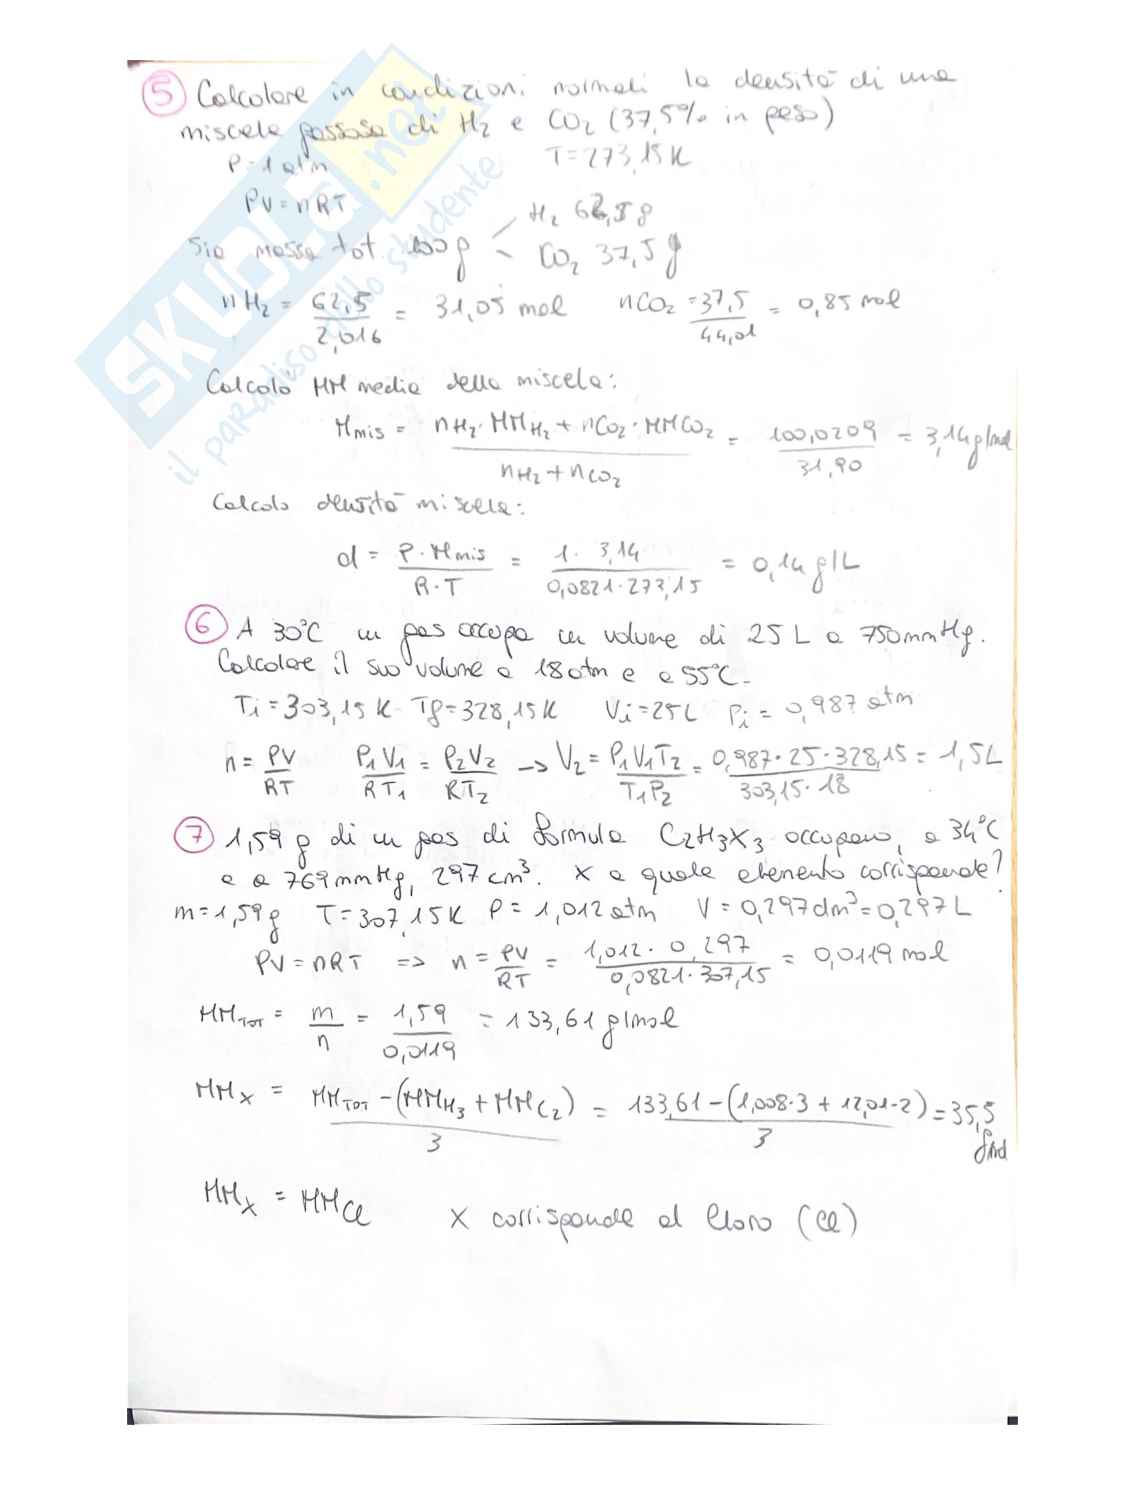 5 Calcolare in condizioni normali la densità di una
miscela gassosa di H₂ e CO₂ (37,5% in peso)
P=1 atm T=273,15K
PV=nRT
Sia massa tot. 100g H₂ 62,5g
CO₂ 37,5g
nH₂ = 62,5/2,016 = 31,05 mol nCO₂ = 37,5/44,01 = 0,85 mol
Calcolo MM media della miscela:
Mmis = nH₂·MMH₂ + nCO₂·MMCO₂ / nH₂+nCO₂ = 100,0209/31,90 = 3,14g/mol
Calcolo densità miscela:
d = P·Mmis / R·T = 1·3,14 / 0,0821·273,15 = 0,14 g/L
6 A 30°C un gas occupa un volume di 25 L a 750mmHg.
Calcolare il suo volume a 18atm e a 55°C.
Ti=303,15K Tf=328,15K Vi=25L Pi=0,987 atm
n = PV/RT P₁V₁/RT₁ = P₂V₂/RT₂ → V₂ = P₁V₁T₂/T₁P₂ = 0,987·25·328,15/303,15·18 = 1,5L
7 1,59g di un gas di formula C₂H₃X₃ occupano, a 34°C
e a 769mmHg, 297cm³. X a quale elemento corrisponde?
m=1,59g T=307,15K P=1,012atm V=0,297dm³=0,297L
PV=nRT => n = PV/RT = 1,012·0,297/0,0821·307,15 = 0,0119 mol
MMTOT = m/n = 1,59/0,0119 = 133,61 g/mol
MMX = MMTOT-(MMH₃+MMC₂)/3 = 133,61-(1,008·3+12,01·2)/3 = 35,5 g/mol
MMX = MMCl X corrisponde al Cloro (Cl)
SKUOLA.net
il paradiso dello studente